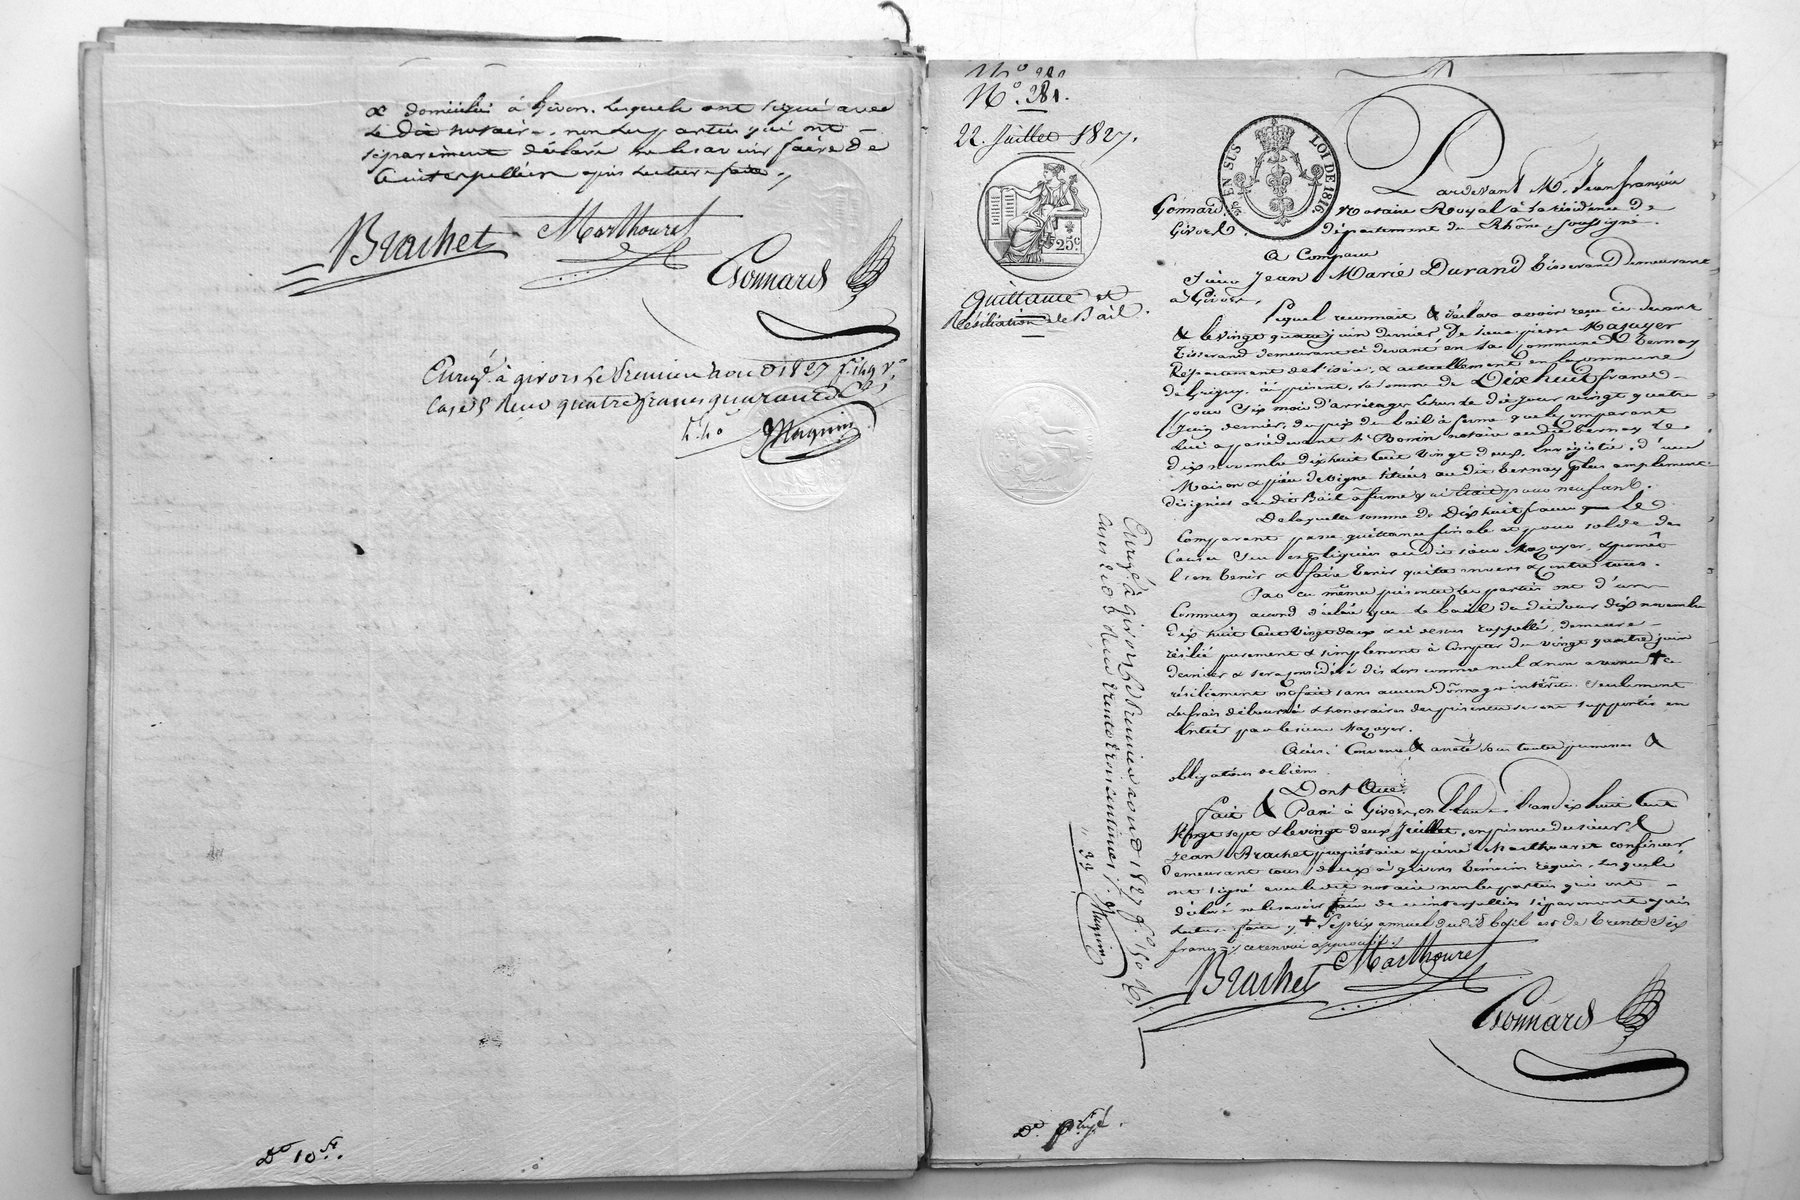 & domicilié à Givors. lesquels ont signé avec
le dit notaire, non les parties qui ont
séparément déclaré ne le savoir faire de
ce interpellées après lecture faite
Brachet
Marthouret
Gonnard
Enregé à givors le Premier aout 1827 fo 149 vo
Case 5 Reçu quatre francs quarante
4.40
Magnin
Do 10
No. 281.
22. Juillet 1827.
25c
Quittance et
Résiliation de Bail.
EN SUS
LOI DE 1816.
Pardevant Me. Jean françois
Gonnard Notaire Royal à la résidence de
Givors, département du Rhône, soussigné.
A Comparu
Sieur Jean Marie Durand tisserand demeurant
à Givors,
Lequel reconnait & déclare avoir reçu ci devant
& le vingt quatre juin dernier, De sieur pierre Mazoyer
tisserand demeurant ci devant en la commune de Ternay
Département de l'isère, & actuellement en la commune
de Grigny, à présent, la somme de Dix huit francs
pour six mois d'arrérages échus le dit jour vingt quatre
juin dernier, du prix du bail à ferme que le comparant
lui a passé devant Me Bonin notaire audit ternay le
dix novembre dix huit cent vingt deux, enregistré, d'une
Maison & pièce de vigne situées au dit ternay plus amplement
désignées audit Bail à ferme qui était pour neuf ans.
De laquelle somme de Dix huit francs le
Comparant passe quittance finale et pour solde des
Causes sus expliquées au dit sieur Mazoyer, & promet
l'en tenir & faire tenir quitte envers & contre tous.
Par ces mêmes présentes les parties ont d'un
Commun accord déclaré que le bail du dit jour dix novembre
dix huit cent vingt deux & ci dessus rappellé, demeure
résilié purement & simplement à compter du vingt quatre juin
dernier & sera considéré dès lors comme nul & non avenu + ce
résiliement est fait sans aucun dommages intérêts. seulement
les frais déboursés & honoraires des présentes seront supportés en
entier par le sieur Mazoyer.
Ainsi Convenu & arrêté sous toutes promesses &
obligations de biens.
Dont Acte.
fait & Passé à Givors, en l'Etude, l'an dix huit cent
Vingt sept & le vingt deux Juillet, en présence de sieurs
Jean Brachet propriétaire & pierre Marthouret confiseur,
Demeurant tous deux à givors témoins requis, lesquels
ont signé avec le dit notaire non les parties qui ont
déclaré ne le savoir faire de ce interpellées séparément après
lecture faite + le prix annuel du dit bail est de trente six
francs ce renvoi approuvé
Brachet
Marthouret
Gonnard
Enregé à givors le Premier aout 1827 fo 150
Magnin
Do